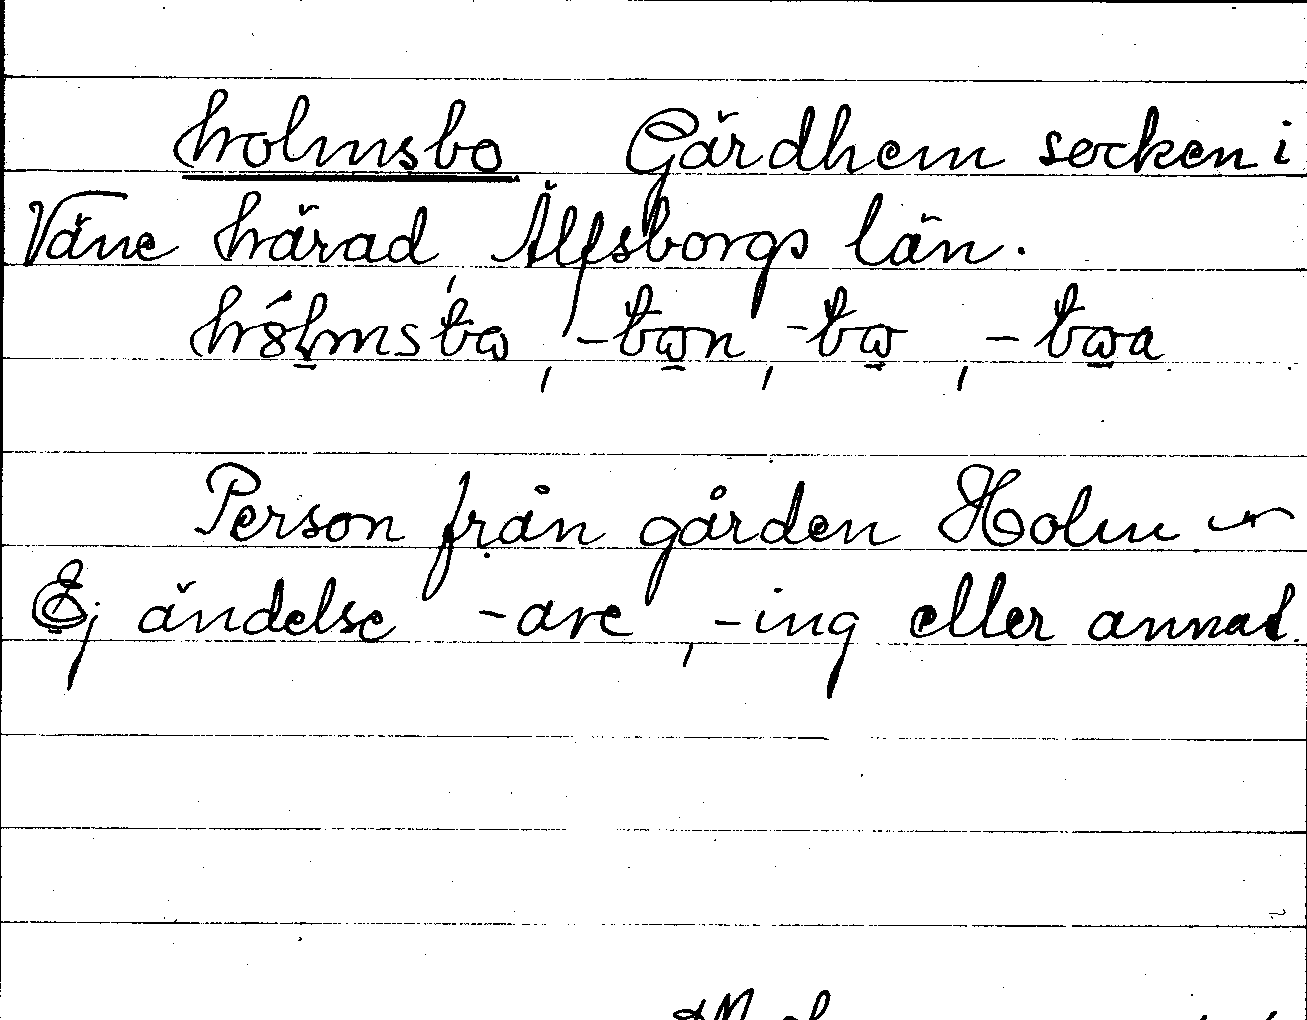 holmsbo Gärdhem socken i
Väne härad, Älfsborgs län.
hólmsbɷ, -bɷn, -bɷ, -bɷa
Person från gården Holm
Ej ändelse -are, -ing eller annat.